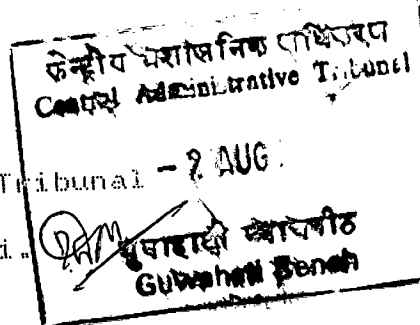 केन्द्रीय प्रशासनिक
Central Administrative Tribunal
Tribunal - 2 AUG
गुवाहाटी न्यायपीठ
Guwahati Bench